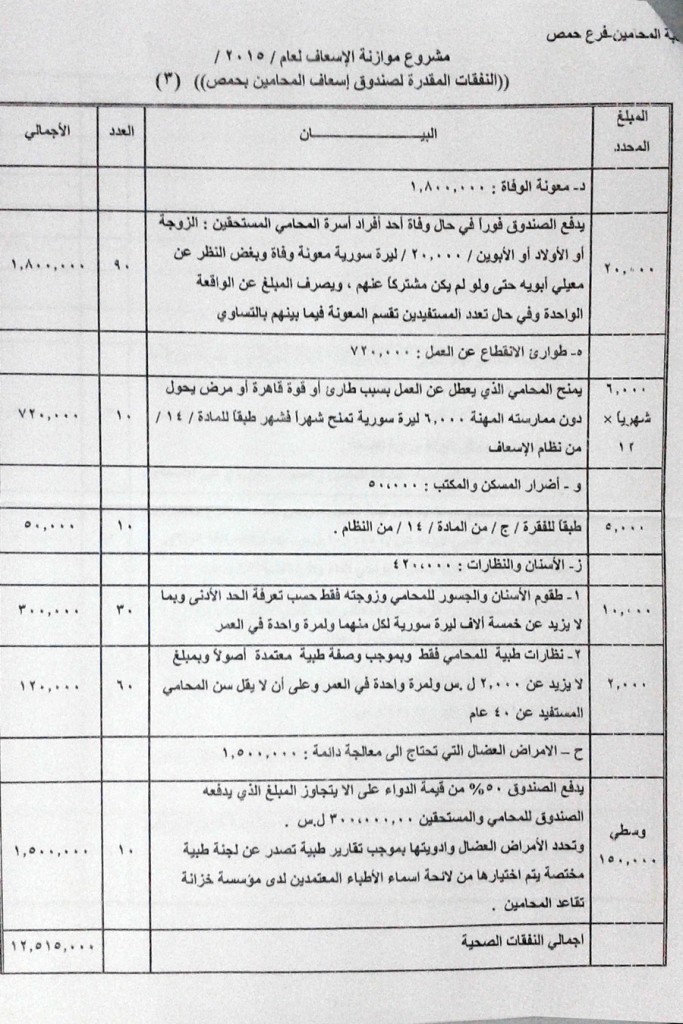 ـة المحامين-فرع حمص
مشروع موازنة الإسعاف لعام / ٢٠١٥ /
((النفقات المقدرة لصندوق إسعاف المحامين بحمص)) (٣)
المبلغ المحدد
البيـــــــــــــان
العدد
الأجمالي
د- معونة الوفاة : ١,٨٠٠,٠٠٠
٢٠,٠٠٠
يدفع الصندوق فوراً في حال وفاة أحد أفراد أسرة المحامي المستحقين : الزوجة
أو الأولاد أو الأبوين / ٢٠,٠٠٠ / ليرة سورية معونة وفاة وبغض النظر عن
معيلي أبويه حتى ولو لم يكن مشتركاً عنهم ، ويصرف المبلغ عن الواقعة
الواحدة وفي حال تعدد المستفيدين تقسم المعونة فيما بينهم بالتساوي
٩٠
١,٨٠٠,٠٠٠
ه- طوارئ الانقطاع عن العمل : ٧٢٠,٠٠٠
٦,٠٠٠
شهرياً ×
١٢
يمنح المحامي الذي يعطل عن العمل بسبب طارئ أو قوة قاهرة أو مرض يحول
دون ممارسته المهنة ٦,٠٠٠ ليرة سورية تمنح شهراً فشهر طبقاً للمادة / ١٤ /
من نظام الإسعاف
١٠
٧٢٠,٠٠٠
و - أضرار المسكن والمكتب : ٥٠,٠٠٠
٥,٠٠٠
طبقاً للفقرة / ج / من المادة / ١٤ / من النظام .
١٠
٥٠,٠٠٠
ز- الأسنان والنظارات : ٤٢٠,٠٠٠
١٠,٠٠٠
١- طقوم الأسنان والجسور للمحامي وزوجته فقط حسب تعرفة الحد الأدنى وبما
لا يزيد عن خمسة آلاف ليرة سورية لكل منهما ولمرة واحدة في العمر
٣٠
٣٠٠,٠٠٠
٢,٠٠٠
٢- نظارات طبية للمحامي فقط وبموجب وصفة طبية معتمدة أصولاً وبمبلغ
لا يزيد عن ٢,٠٠٠ ل .س ولمرة واحدة في العمر وعلى أن لا يقل سن المحامي
المستفيد عن ٤٠ عام
٦٠
١٢٠,٠٠٠
ح – الامراض العضال التي تحتاج الى معالجة دائمة : ١,٥٠٠,٠٠٠
وسطي
١٥٠,٠٠٠
يدفع الصندوق ٥٠% من قيمة الدواء على الا يتجاوز المبلغ الذي يدفعه
الصندوق للمحامي والمستحقين ٣٠٠,٠٠٠,٠٠ ل.س .
وتحدد الأمراض العضال وادويتها بموجب تقارير طبية تصدر عن لجنة طبية
مختصة يتم اختيارها من لائحة اسماء الأطباء المعتمدين لدى مؤسسة خزانة
تقاعد المحامين .
١٠
١,٥٠٠,٠٠٠
اجمالي النفقات الصحية
١٢,٥١٥,٠٠٠